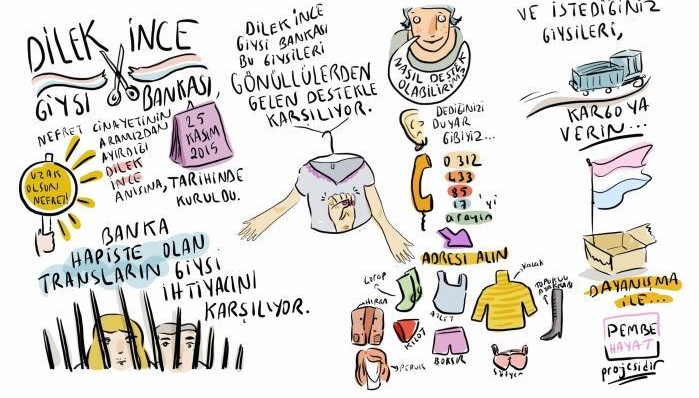 DİLEK İNCE
GİYSİ BANKASI,
NEFRET CİNAYETİNİN
ARAMIZDAN
AYIRDIĞI
DİLEK
İNCE
ANISINA,
25
KASIM
2015
TARİHİNDE
KURULDU.
UZAK
OLSUN
NEFRET!
BANKA
HAPİSTE OLAN
TRANSLARIN GİYSİ
İHTİYACINI
KARŞILIYOR.
DİLEK İNCE
GİYSİ BANKASI
BU GİYSİLERİ
GÖNÜLLÜLERDEN
GELEN DESTEKLE
KARŞILIYOR.
NASIL DESTEK
OLABİLİRİM?
DEDİĞİNİZİ
DUYAR
GİBİYİZ...
0 312
433
85
17 'yi
arayın
ADRESİ ALIN
çorap
HIRKA
ATLET
Kazak
TOPUKLU
KİLOT
BOKSIR
Sütyen
PERUK
VE İSTEDİĞİNİZ
GİYSİLERİ,
KARGOYA
VERİN...
DAYANIŞMA
İLE...
PEMBE
HAYAT
projesidir